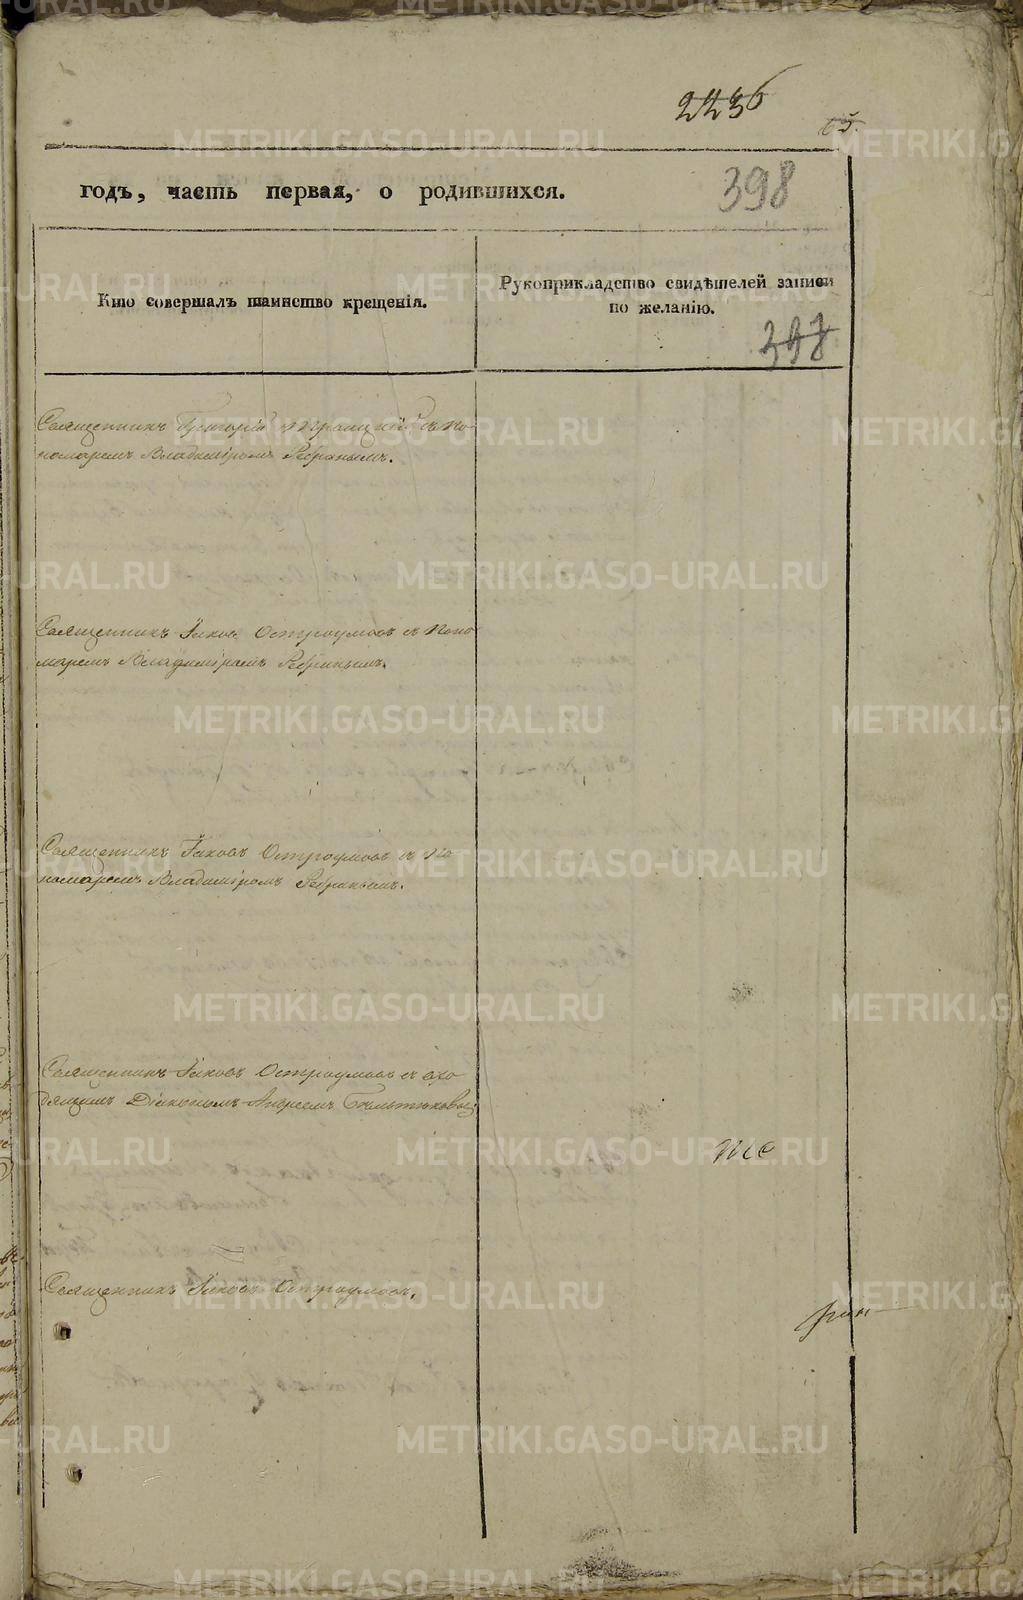 2236
65.
годъ, часть первая, о родившихся.
398
Кто совершалъ таинство крещенія.
Рукоприкладство свидѣтелей записи
по желанію.
397
Священникъ Григорій Троицкій съ по-
номаремъ Владиміромъ
Священникъ Іаковъ Остроумовъ съ поно
маремъ Владиміромъ
Священникъ Іаковъ Остроумовъ съ по
номаремъ Владиміромъ
Священникъ Іаковъ Остроумовъ съ
Діакономъ Андреемъ
Священникъ Іаковъ Остроумовъ.
METRIKI.GASO-URAL.RU